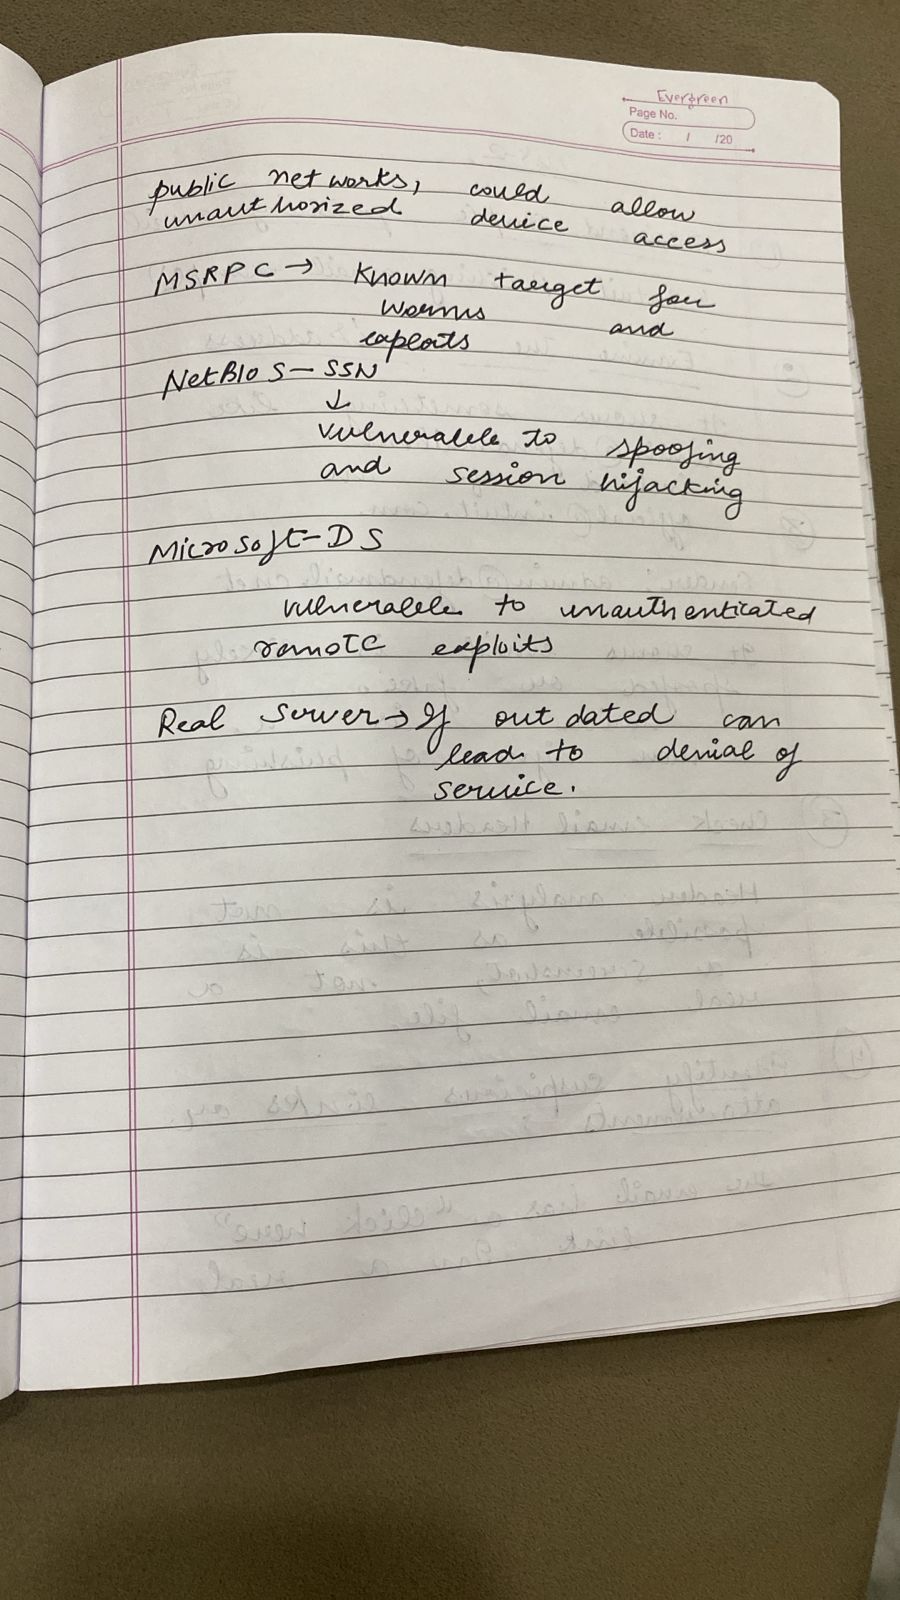 Evergreen
Page No.
Date : / /20
public networks, could allow
unauthorized device access
MSRPC → Known target for
worms and
exploits
NetBIOS - SSN
↓
vulnerable to spoofing
and session hijacking
Microsoft-DS
vulnerable to unauthenticated
remote exploits
Real Server → If outdated can
lead to denial of
service.